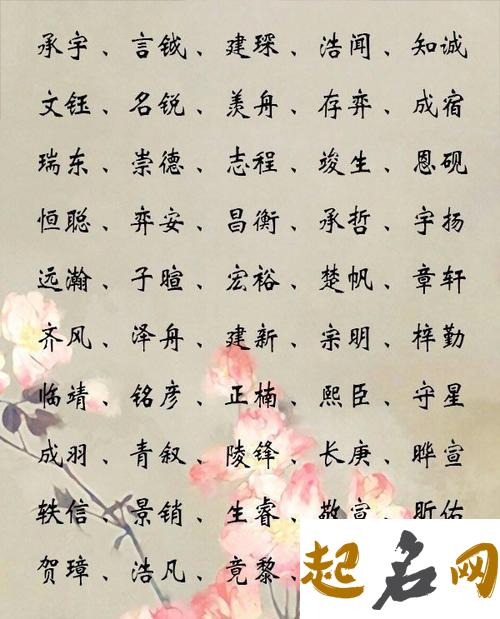 承宇、言钺、建琛、浩闻、知诚
文钰、名锐、羡舟、存弈、成宿
瑞东、崇德、志程、竣生、恩砚
恒聪、弈安、昌衡、承哲、宇扬
远瀚、子暄、宏裕、楚帆、章轩
齐风、泽舟、建新、宗明、梓勤
临靖、铭彦、正楠、熙臣、守星
成羽、青叙、陵锋、长庚、晔宣
轶信、景销、生睿、敬宣、昕佑
贺璋、浩凡、竟黎、
起名网